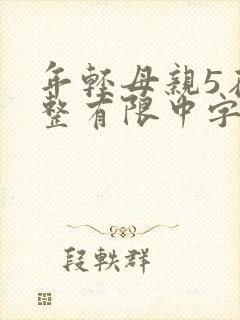 年輕母親5在
整有限中字
段軼群